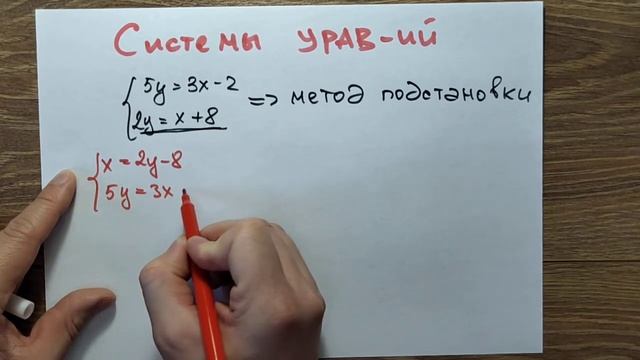 Системы УРАВ-ий
5y = 3x - 2
2y = x + 8
=> метод подстановки
x = 2y - 8
5y = 3x